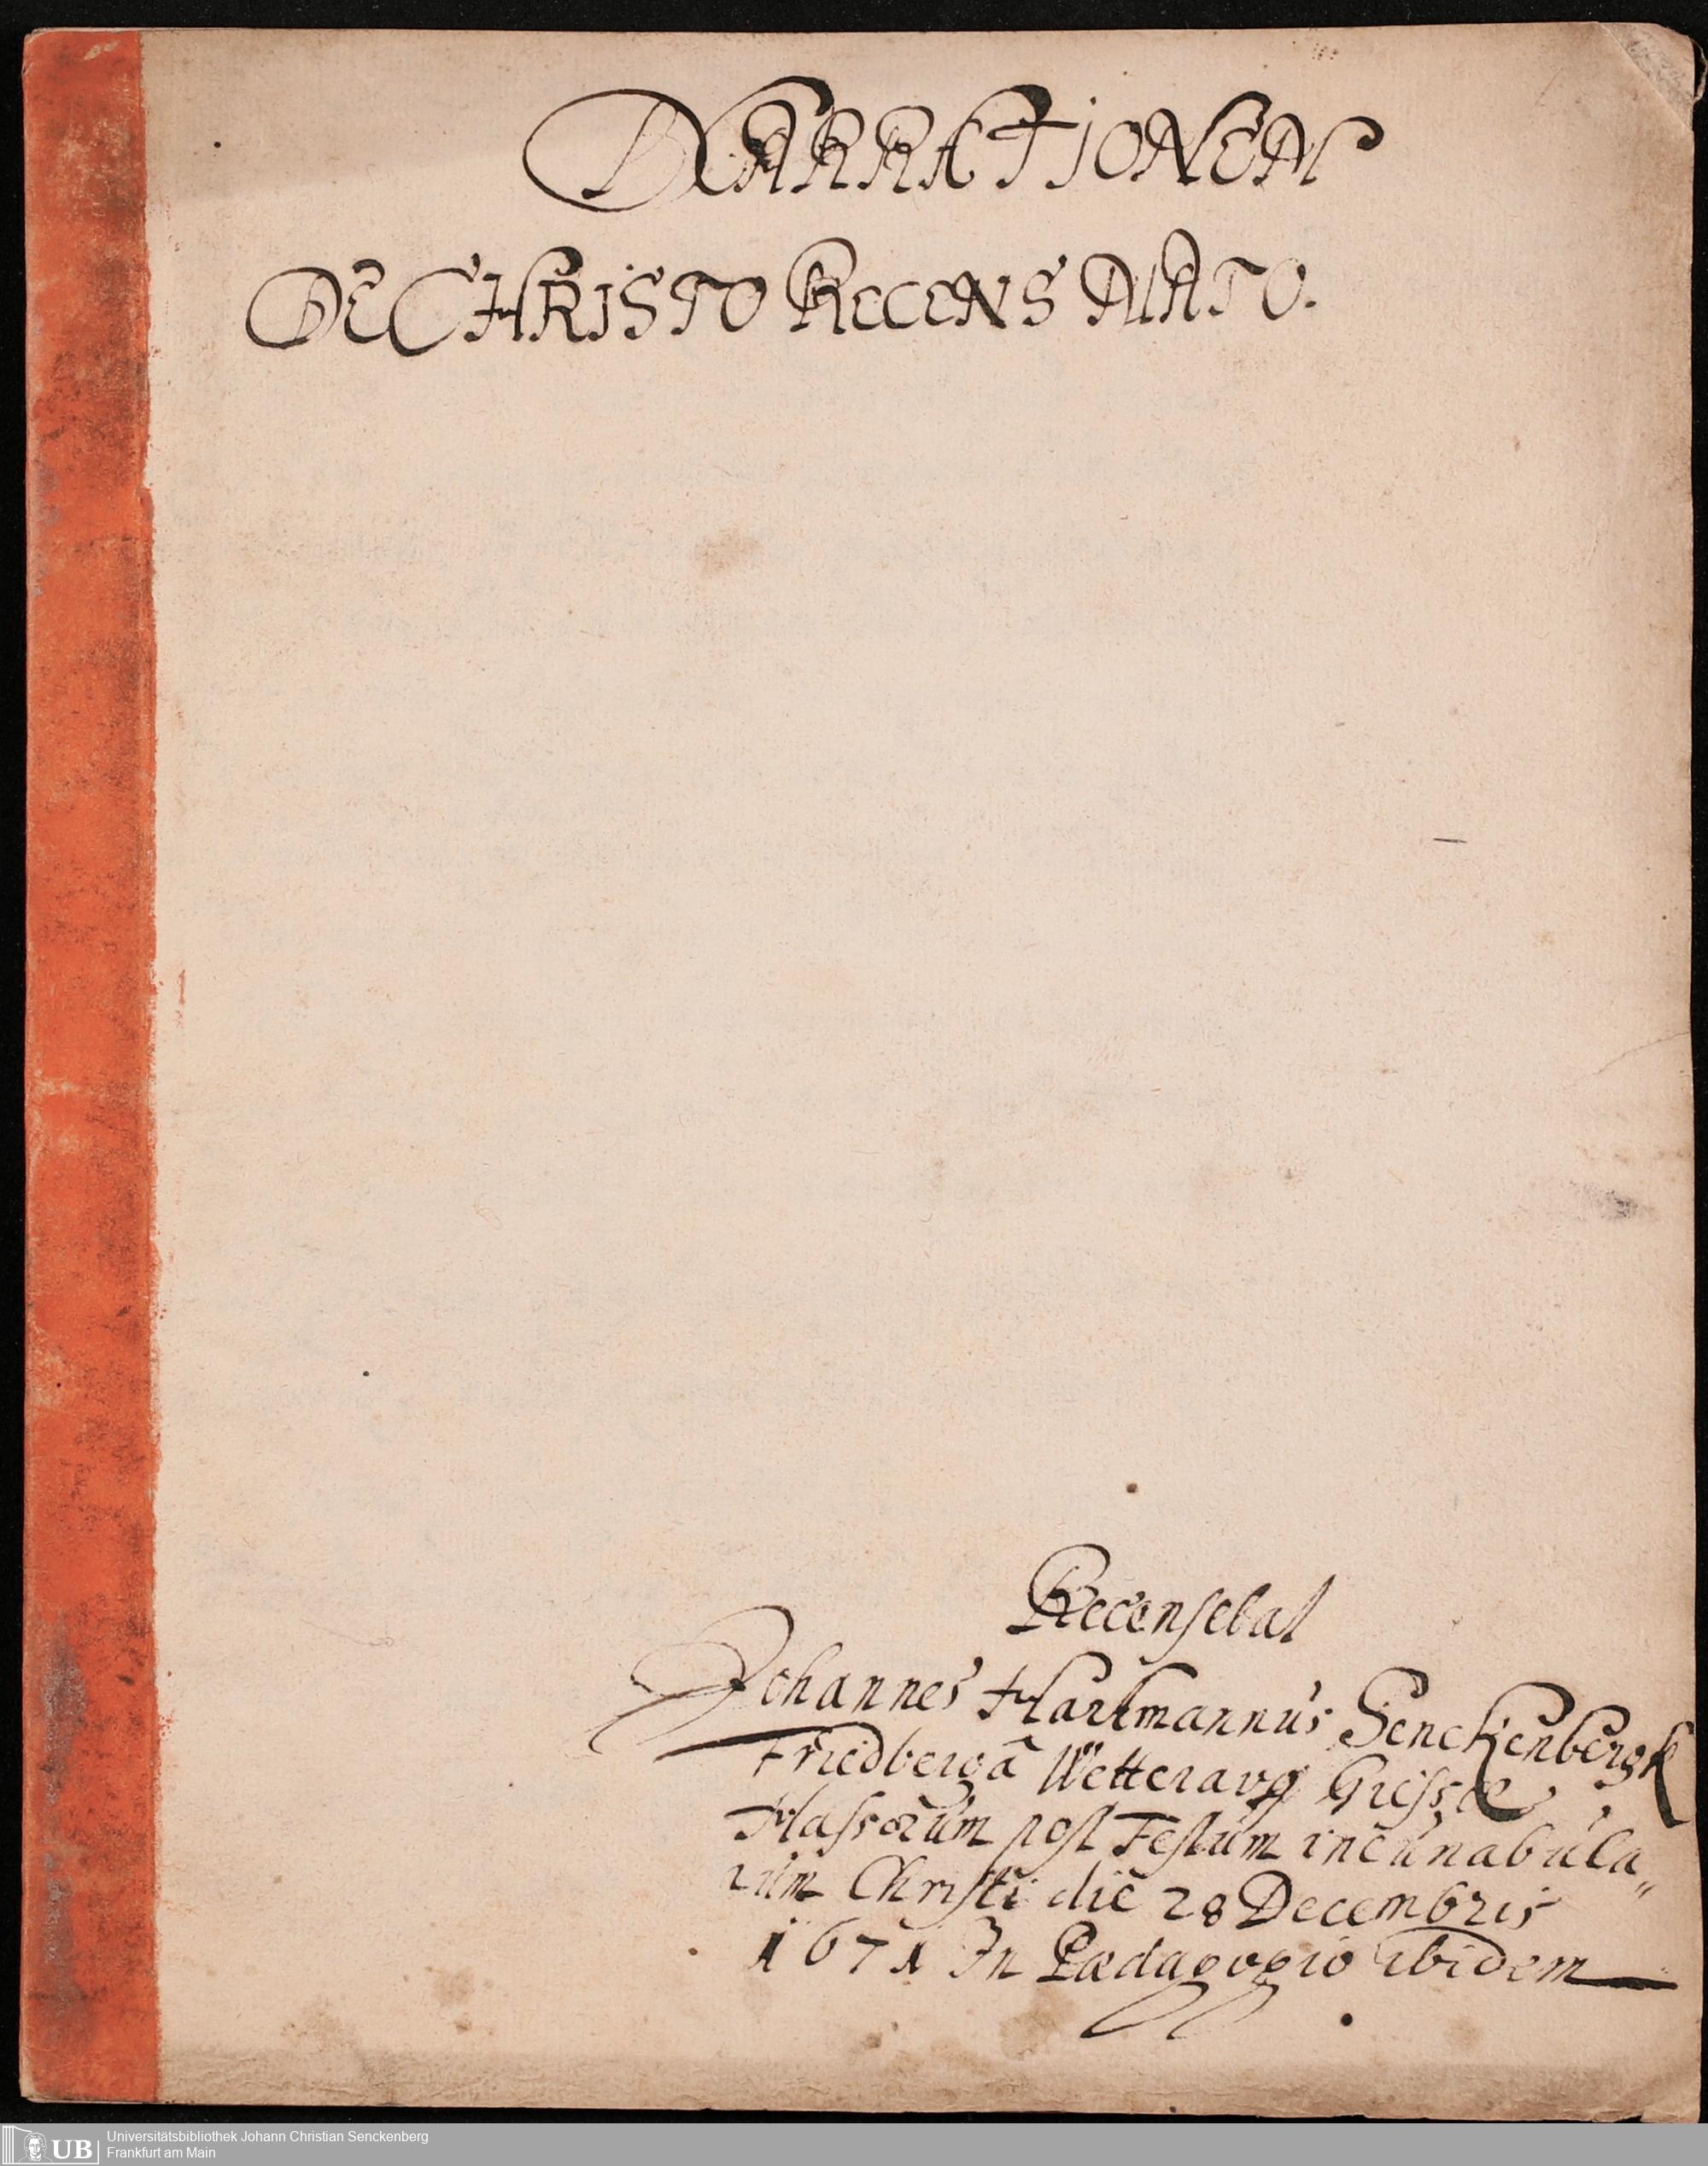 NARRATIONEM
DE CHRISTO RECENS NATO.
Recensebat
Johannes Hartmannus Senckenbergk
Friedbergâ Wetteravg Giessæ
Hassorum post Festum incunabula„
rum Christi die 28 Decembris
1671 In Pædagogio ibidem
UB
Universitätsbibliothek Johann Christian Senckenberg
Frankfurt am Main